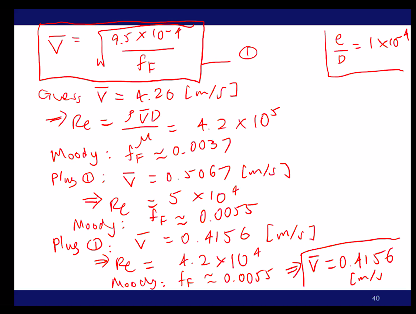 V̄ = √(9.5 × 10⁻⁴ / f_F) ①
e/D = 1 × 10⁻⁴
Guess V̄ = 4.20 [m/s]
⇒ Re = ρV̄D/μ = 4.2 × 10⁵
Moody: f_F ≈ 0.0037
Plug ①: V̄ = 0.5067 [m/s]
⇒ Re = 5 × 10⁴
Moody: f_F ≈ 0.0055
Plug ①: V̄ = 0.4156 [m/s]
⇒ Re = 4.2 × 10⁴
Moody: f_F ≈ 0.0055 ⇒ V̄ = 0.4156
[m/s
40